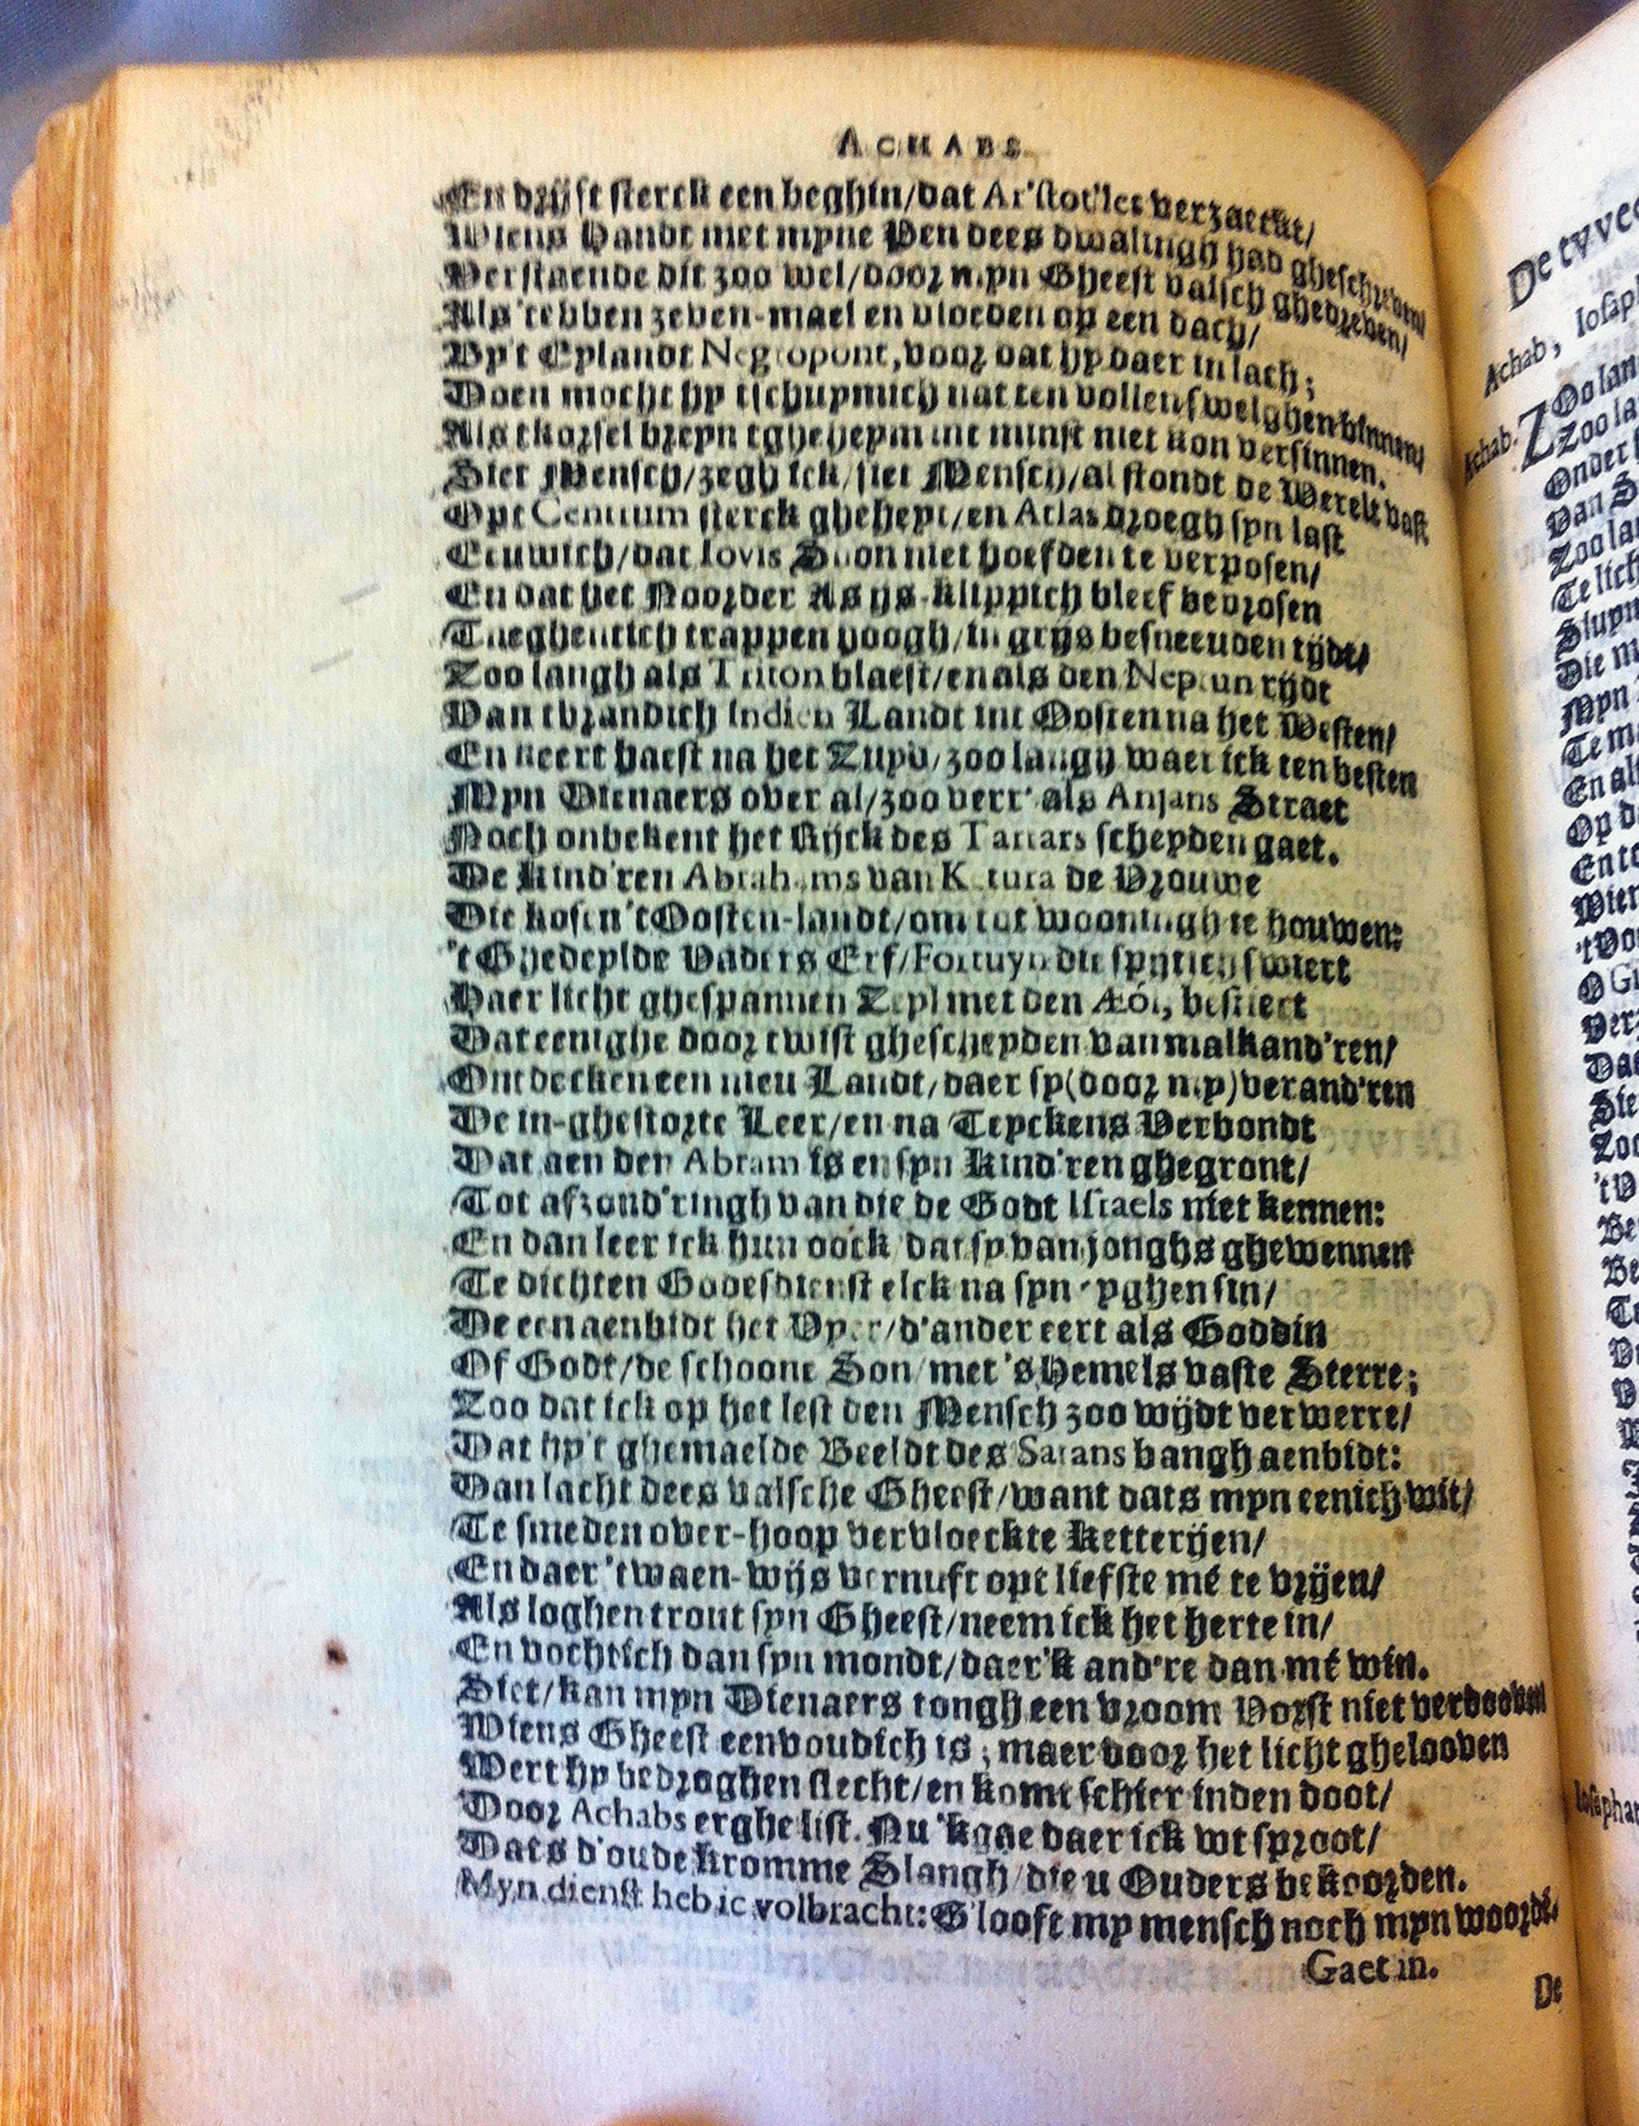 ACHABS
En drijft sterck een beghin/dat Aristot'les verzaeckt/
Wiens Handt met mijne Pen dees dwalingh had gheschreven/
Verstaende dit zoo wel/door mijn Gheest valsch ghedreven/
Als 't ebben zeven-mael en vloeden op een dach/
By't Eylandt Negropont, voor dat hy daer in lach;
Doen mocht hy tschuymich nat ten vollen swelghen binnen/
Als tkorsel breyn tgheheym int minst niet kon versinnen.
Siet Mensch/zegh ick/siet Mensch/al stondt de Werelt vast
Opt Centrum sterck ghehept/en Atlas droegh syn last
Eeuwich/dat Iovis Soon niet hoefden te verposen/
En dat het Noorder As ijs-klippich bleef bevrosen
Tneghentich trappen hoogh/in grijs besneeuden tijdt/
Zoo langh als Triton blaest/en als den Neptun rijdt
Van tbrandich Indien Landt uit Oosten na het Westen/
En keert haest na het Zuyd/zoo langh waer ick ten besten
Myn Dienaers over al/zoo verr' als Anjans Straet
Noch onbekent het Rijck des Tartars scheyden gaet.
De kind'ren Abrahams van Ketura de Vrouwe
Die kosen 't Oosten-landt/om tot wooningh te houwen:
't Ghedeylde Vaders Erf/Fortuyn die spijtich swiert
Haer licht ghespannen Zeyl met den Æol, bestiert
Dat eenighe door twist ghescheyden van malkand'ren/
Ontdecken een nieu Landt/daer sy(door my)verand'ren
De in-ghestorte Leer/en na Teyckens Verbondt
Dat aen den Abram is en syn kind'ren ghegront/
Tot afzond'ringh van die de Godt Israels niet kennen:
En dan leer ick hun oock dat sy van jonghs ghewennen
Te dichten Godesdienst elck na syn eyghen sin/
De een aenbidt het Vyer/d'ander eert als Goddin
Of Godt/de schoone Son/met 's Hemels vaste Sterre;
Zoo dat ick op het lest den Mensch zoo wijdt verwerre/
Dat hy't ghemaelde Beeldt des Satans bangh aenbidt:
Dan lacht dees valsche Gheest/want dats myn eenich wit/
Te smeden over-hoop vervloeckte ketterijen/
En daer 't waen-wijs vernuft opt liefste mé te vrijen/
Als loghen trout syn Gheest/neem ick het herte in/
En vochtich dan syn mondt/daer'k and're dan mé win.
Siet/kan myn Dienaers tongh een vroom Vorst niet verdooven
Wiens Gheest eenvoudich is; maer door het licht ghelooven
Wert hy bedroghen slecht/en komt schier inden doot/
Door Achabs erghe list. Nu 'kgae daer ick wt sproot/
Dats d'oude kromme Slangh/die u Ouders bekoorden.
Myn dienst heb ic volbracht: G'looft my mensch noch myn woordé.
Gaet in.
De
De tvvee
Achab, Iosaph
Achab. ZOo lan
Zoo la
Onder
Van S
Zoo la
Te lich
Sluym
Die m
Myn
Te m
En als
Op d
En to
Wien
't Voo
O G
Verz
Dat
Sie
Zoo
't V
Be
Be
To
Iosaphat